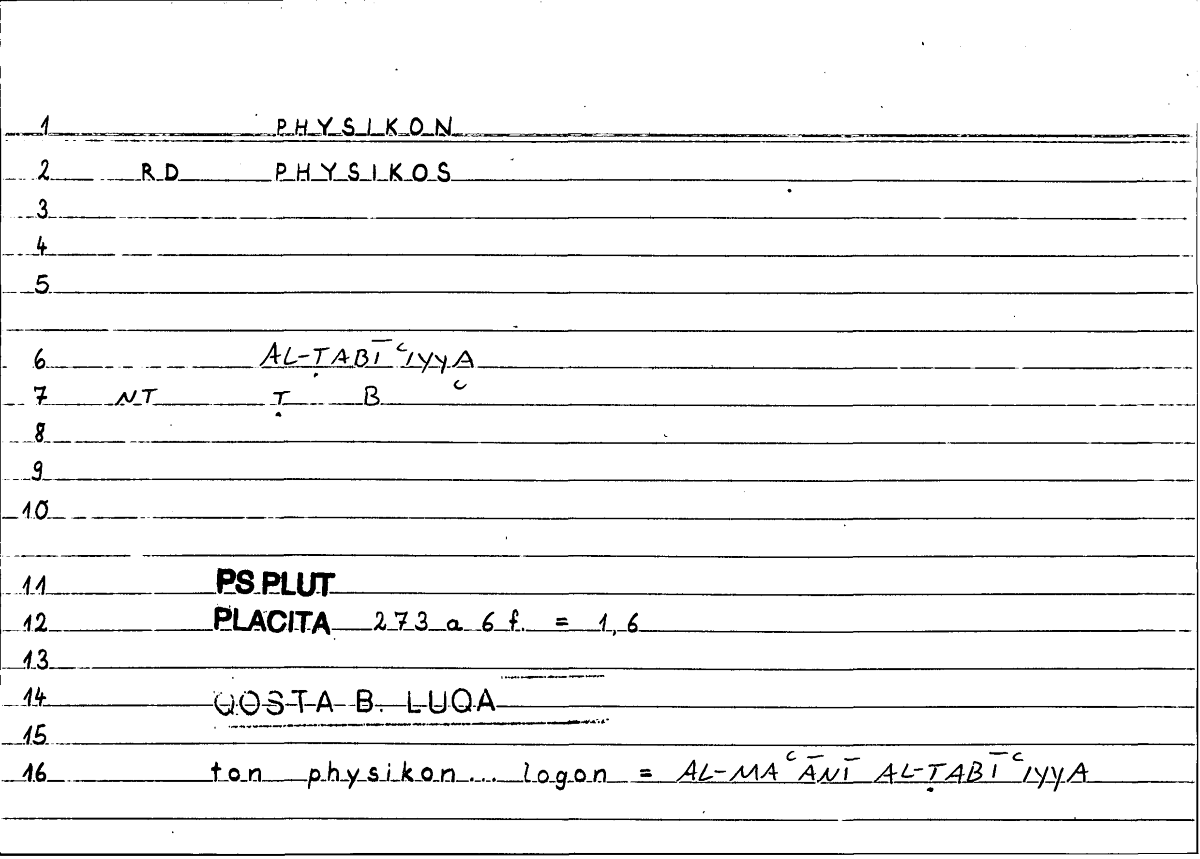 1 PHYSIKON
2 RD PHYSIKOS
3
4
5
6 AL-ṬABĪʿIYYA
7 NT Ṭ B ʿ
8
9
10
11 PS.PLUT
12 PLACITA 273 a 6 f. = 1,6
13
14 QOSTA B. LUQA
15
16 ton physikon... logon = AL-MAʿĀNĪ AL-ṬABĪʿIYYA